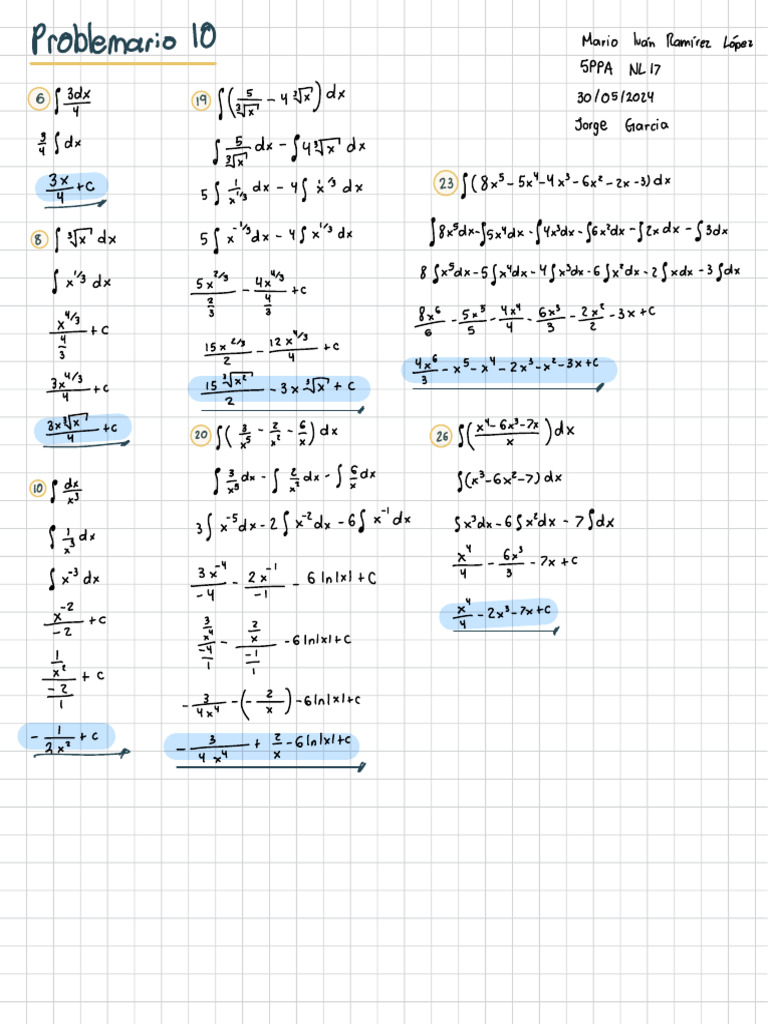 Problemario 10
Mario Iván Ramírez López
5PPA NL 17
30/05/2024
Jorge García
6 ∫ 3dx/4
3/4 ∫ dx
3x/4 + c
8 ∫ ∛x dx
∫ x^1/3 dx
x^4/3 / (4/3) + c
3x^4/3 / 4 + c
3x∛x / 4 + c
10 ∫ dx/x³
∫ 1/x³ dx
∫ x^-3 dx
x^-2 / -2 + c
(1/x²) / (-2/1) + c
- 1/2x² + c
19 ∫ (5/∛x - 4∛x) dx
∫ 5/∛x dx - ∫ 4∛x dx
5 ∫ 1/x^1/3 dx - 4 ∫ x^1/3 dx
5 ∫ x^-1/3 dx - 4 ∫ x^1/3 dx
5x^2/3 / (2/3) - 4x^4/3 / (4/3) + c
15x^2/3 / 2 - 12x^4/3 / 4 + c
15∛x² / 2 - 3x∛x + c
20 ∫ (3/x⁵ - 2/x² - 6/x) dx
∫ 3/x⁵ dx - ∫ 2/x² dx - ∫ 6/x dx
3 ∫ x^-5 dx - 2 ∫ x^-2 dx - 6 ∫ x^-1 dx
3x^-4 / -4 - 2x^-1 / -1 - 6 ln|x| + c
(3/x⁴) / (-4/1) - (2/x) / (-1/1) - 6 ln|x| + c
- 3/4x⁴ - (- 2/x) - 6 ln|x| + c
- 3/4x⁴ + 2/x - 6 ln|x| + c
23 ∫ (8x⁵ - 5x⁴ - 4x³ - 6x² - 2x - 3) dx
∫ 8x⁵dx - ∫ 5x⁴dx - ∫ 4x³dx - ∫ 6x²dx - ∫ 2x dx - ∫ 3dx
8 ∫ x⁵dx - 5 ∫ x⁴dx - 4 ∫ x³dx - 6 ∫ x²dx - 2 ∫ xdx - 3 ∫ dx
8x⁶/6 - 5x⁵/5 - 4x⁴/4 - 6x³/3 - 2x²/2 - 3x + c
4x⁶/3 - x⁵ - x⁴ - 2x³ - x² - 3x + c
26 ∫ (x⁴ - 6x³ - 7x / x) dx
∫ (x³ - 6x² - 7) dx
∫ x³dx - 6 ∫ x²dx - 7 ∫ dx
x⁴/4 - 6x³/3 - 7x + c
x⁴/4 - 2x³ - 7x + c